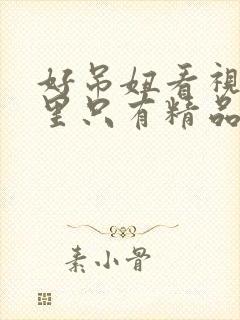 好吊妞看視
里只有精品
素小骨